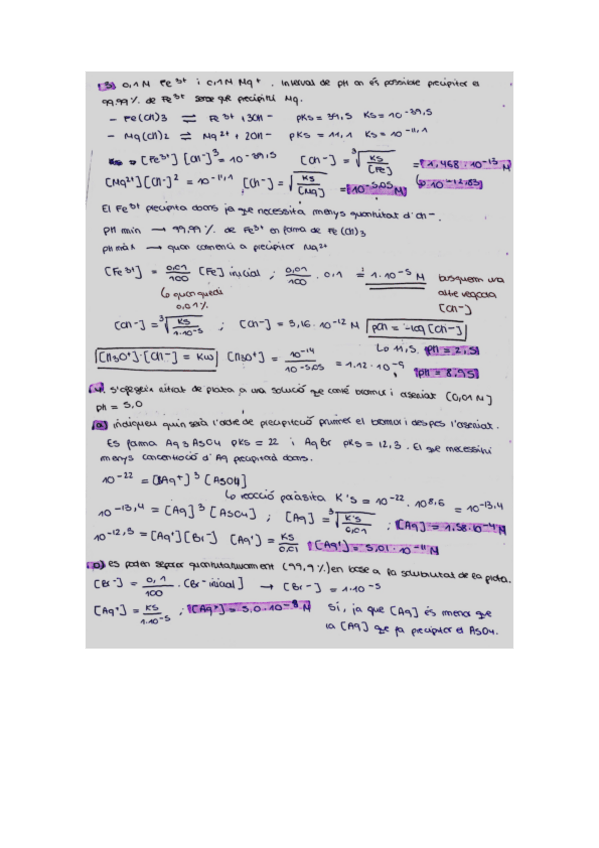 3) 0,1 M Fe3+ i 0,1 M Mg+. Interval de pH on és possible precipitar el
99.99 % de Fe3+ sense que precipiti Mg.
- Fe(OH)3 ⇌ Fe3+ + 3OH- pKs = 39,5 Ks = 10^-39,5
- Mg(OH)2 ⇌ Mg2+ + 2OH- pKs = 11,1 Ks = 10^-11,1
[Fe3+] [OH-]^3 = 10^-39,5 [OH-] = ∛(Ks/[Fe]) = 1,468·10^-13 M
[Mg2+] [OH-]^2 = 10^-11,1 [OH-] = √(Ks/[Mg]) = 10^-5,05 M ↳ 10^-12,83
El Fe3+ precipita abans ja que necessita menys quantitat d'OH-.
pH mín → 99.99 % de Fe3+ en forma de Fe(OH)3
pH màx → quan comenci a precipitar Mg2+
[Fe3+] = 0,01/100 [Fe] inicial ; 0,01/100 · 0,1 = 1·10^-5 M busquem una
↳ quan quedi altre vegada
0,01 % [OH-]
[OH-] = ∛(Ks/1·10^-5) ; [OH-] = 3,16·10^-12 M pOH = -log [OH-]
↳ 11,5. pH = 2,5
[H3O+]·[OH-] = Kw [H3O+] = 10^-14/10^-5,05 = 1.12·10^-9
pH = 8,95
4. S'afegeix nitrat de plata a una solució que conté bromur i arseniat (0,01 M)
pH = 5,0
a) indiqueu quin serà l'ordre de precipitació primer el bromur i després l'arseniat.
Es forma Ag3AsO4 pKs = 22 i AgBr pKs = 12,3. El que necessiti
menys concentració d'Ag precipitarà abans.
10^-22 = [Ag+]^3 [AsO4]
↳ reacció paràsita K's = 10^-22 · 10^8,6 = 10^-13,4
10^-13,4 = [Ag]^3 [AsO4] ; [Ag] = ∛(K's/0,01) ; [Ag] = 1,58·10^-4 M
10^-12,3 = [Ag+] [Br-] [Ag+] = Ks/0,01 [Ag+] = 5,01·10^-11 M
b) es poden separar quantitativament (99,9 %) en base a la solubilitat de la plata.
[Br-] = 0,1/100 · [Br- inicial] → [Br-] = 1·10^-5
[Ag+] = Ks/1·10^-5 ; [Ag+] = 5,0·10^-8 M Sí, ja que [Ag] és menor que
la [Ag] que fa precipitar el AsO4.